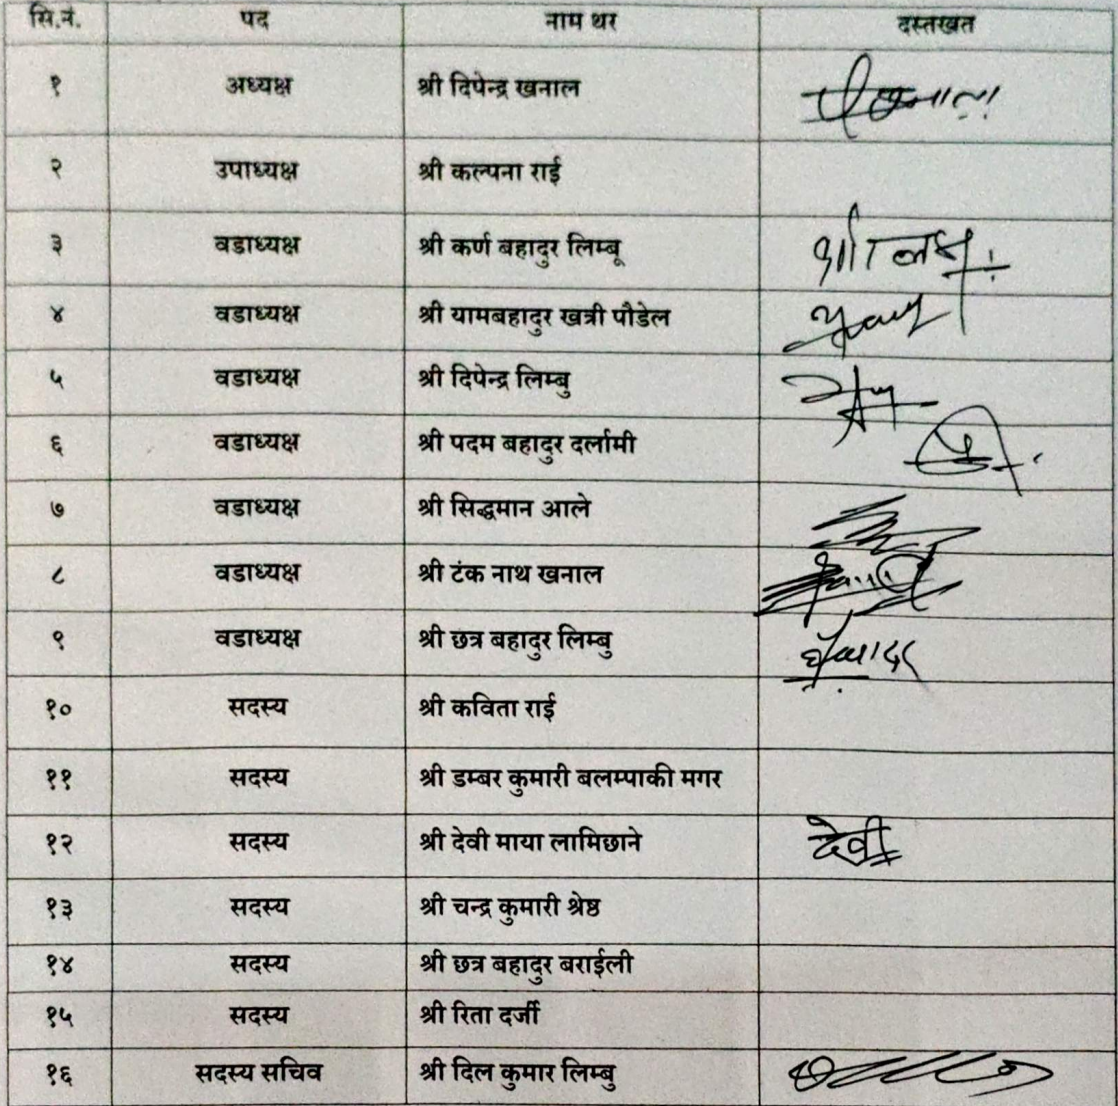 सि.नं. पद नाम थर दस्तखत
१ अध्यक्ष श्री दिपेन्द्र खनाल
२ उपाध्यक्ष श्री कल्पना राई
३ वडाध्यक्ष श्री कर्ण बहादुर लिम्बू
४ वडाध्यक्ष श्री यामबहादुर खत्री पौडेल
५ वडाध्यक्ष श्री दिपेन्द्र लिम्बु
६ वडाध्यक्ष श्री पदम बहादुर दर्लामी
७ वडाध्यक्ष श्री सिद्धमान आले
८ वडाध्यक्ष श्री टंक नाथ खनाल
९ वडाध्यक्ष श्री छत्र बहादुर लिम्बु
१० सदस्य श्री कविता राई
११ सदस्य श्री डम्बर कुमारी बलम्पाकी मगर
१२ सदस्य श्री देवी माया लामिछाने देवी
१३ सदस्य श्री चन्द्र कुमारी श्रेष्ठ
१४ सदस्य श्री छत्र बहादुर बराईली
१५ सदस्य श्री रिता दर्जी
१६ सदस्य सचिव श्री दिल कुमार लिम्बु